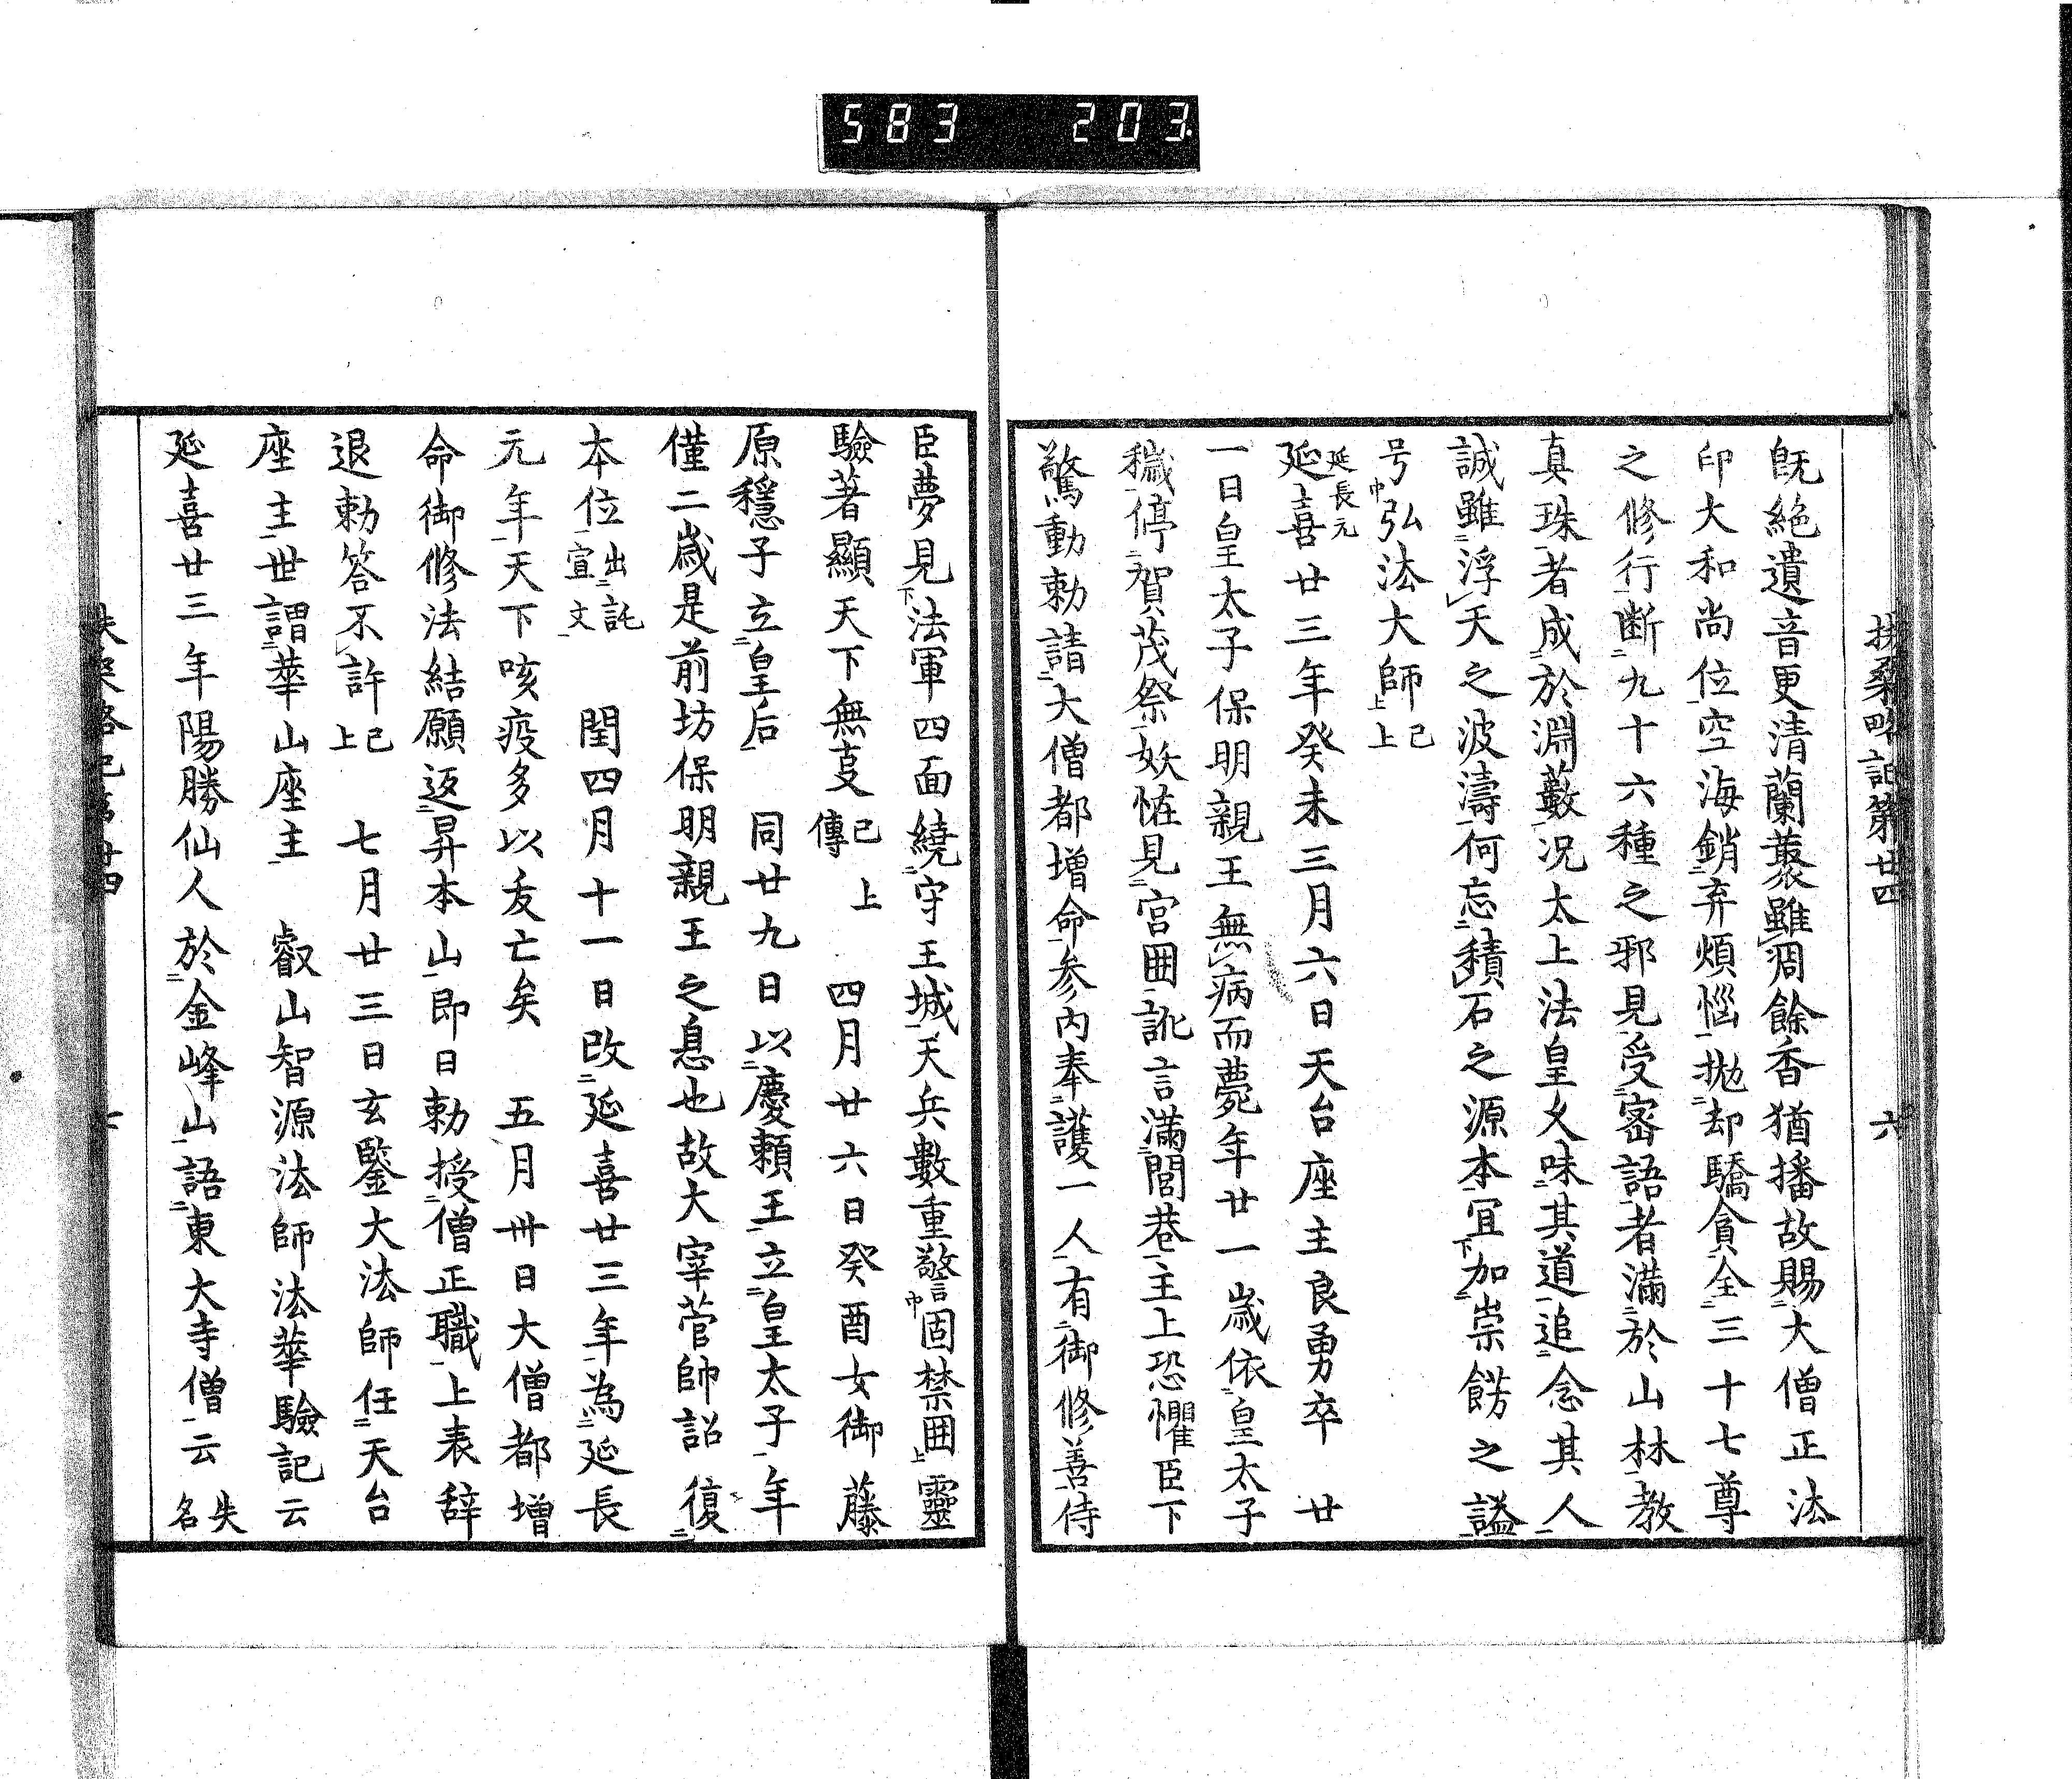 583 203
扶桑略記第廿四 六
既絶遺音更清蘭藂雖凋餘香猶播故賜大僧正法
印大和尚位空海銷弃煩惱抛却驕貪全三十七尊
之修行断九十六種之邪見受密語者滿於山林教
真珠者成於淵藪况太上法皇文味其道追念其人
誠雖浮天之波濤何忘積石之源本冝加崇餝之謚
号弘法大師已上
延長元
延喜廿三年癸未三月六日天台座主良勇卒 廿
一日皇太子保明親王無病而薨年廿一歳依皇太子
穢停賀茂祭妖恠見宮囲訛言滿閭巷主上恐懼臣下
驚動勅請大僧都増命参内奉護一人有御修善侍
臣夢見法軍四面繞守王城天兵數重警固禁囲靈
驗著顯天下無㕝已上傳 四月廿六日癸酉女御藤
原穩子立皇后 同廿九日以慶頼王立皇太子年
僅二歳是前坊保明親王之息也故大宰菅帥詔復
本位出託宣文 閏四月十一日改延喜廿三年為延長
元年天下咳疫多以夭亡矣 五月卅日大僧都増
命御修法結願返昇本山即日勅授僧正職上表辞
退勅答不許已上 七月廿三日玄鑒大法師任天台
座主世謂華山座主 叡山智源法師法華驗記云
延喜廿三年陽勝仙人於金峰山語東大寺僧云失名